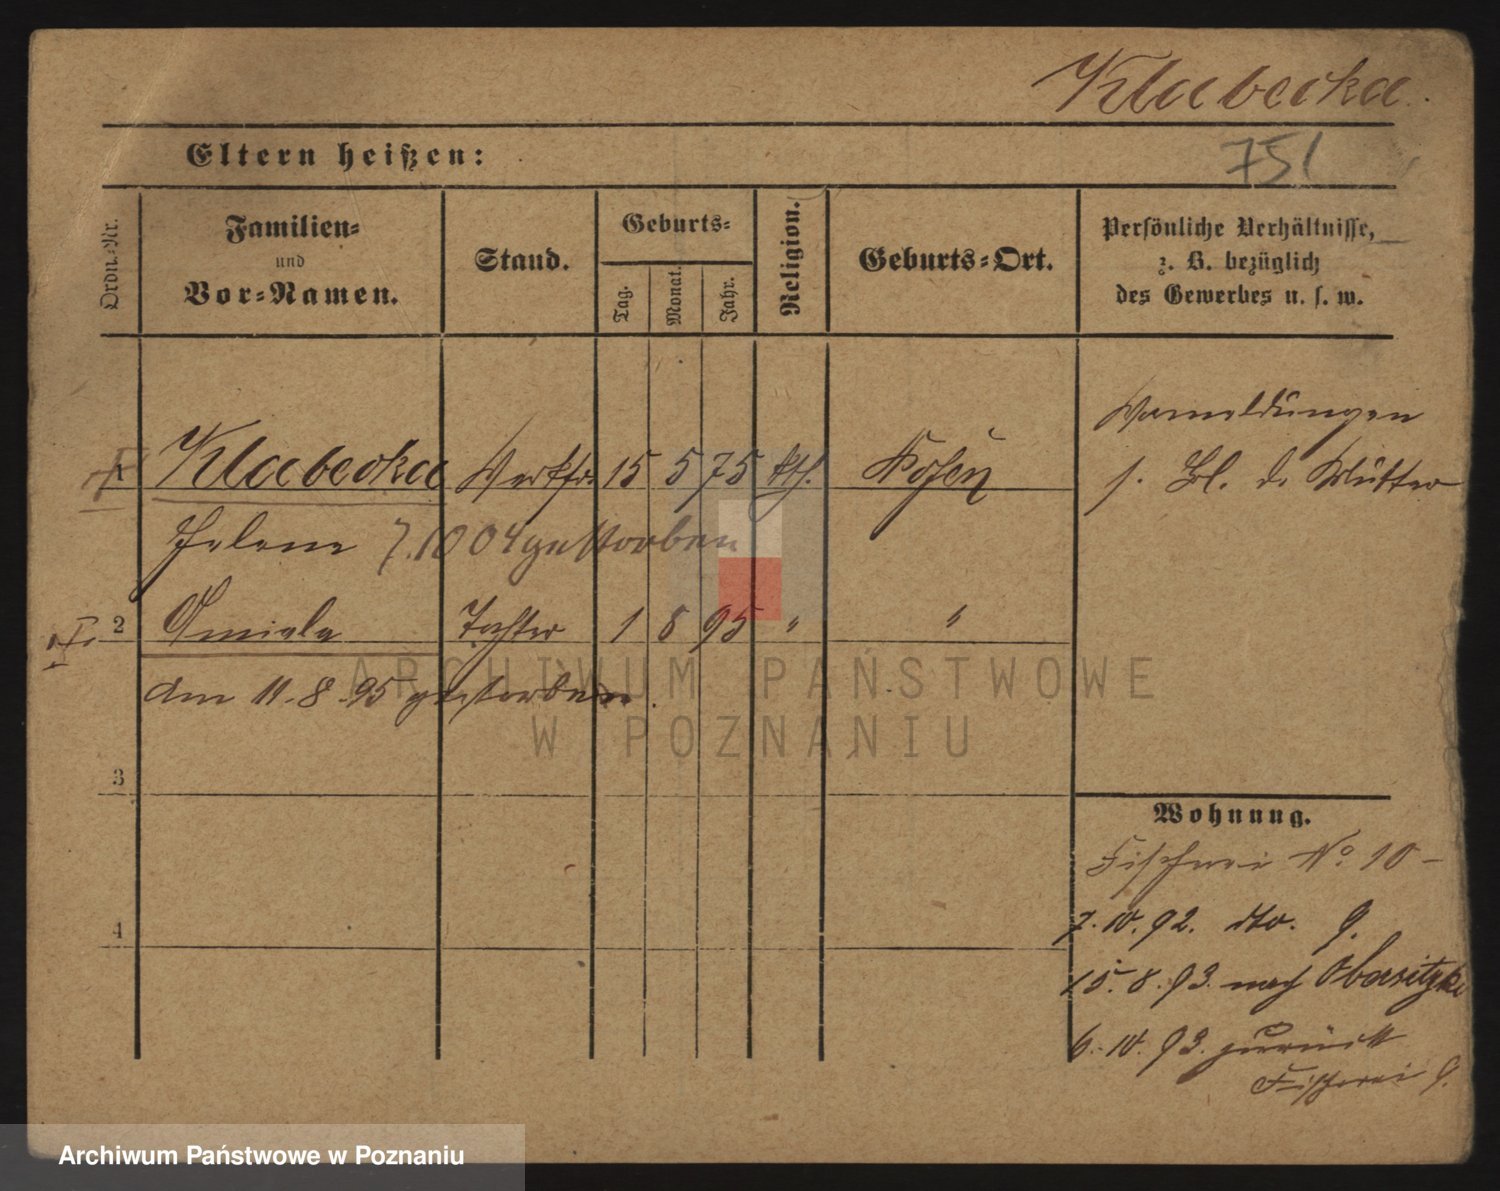 Klabecka.
Eltern heißen:
751
Ordn.-Nr.
Familien-
und
Vor-Namen.
Stand.
Geburts-
Tag.
Monat.
Jahr.
Religion.
Geburts-Ort.
Persönliche Verhältnisse,
z. B. bezüglich
des Gewerbes u. s. w.
Vormeldungen
1 Klabecka 15 5 75 kth. Posen
s. Bl. d. Mutter
Helene 7.10 04 gestorben
2 Tochter 1 8 95 " "
am 11.8.95 gestorben.
ARCHIWUM PAŃSTWOWE
W POZNANIU
3
Wohnung.
Fischerei No. 10 -
7.10.92. dto. 9.
4
15.8.93. nach Obersitzko
6.10.93. zurück
Fischerei 9.
Archiwum Państwowe w Poznaniu